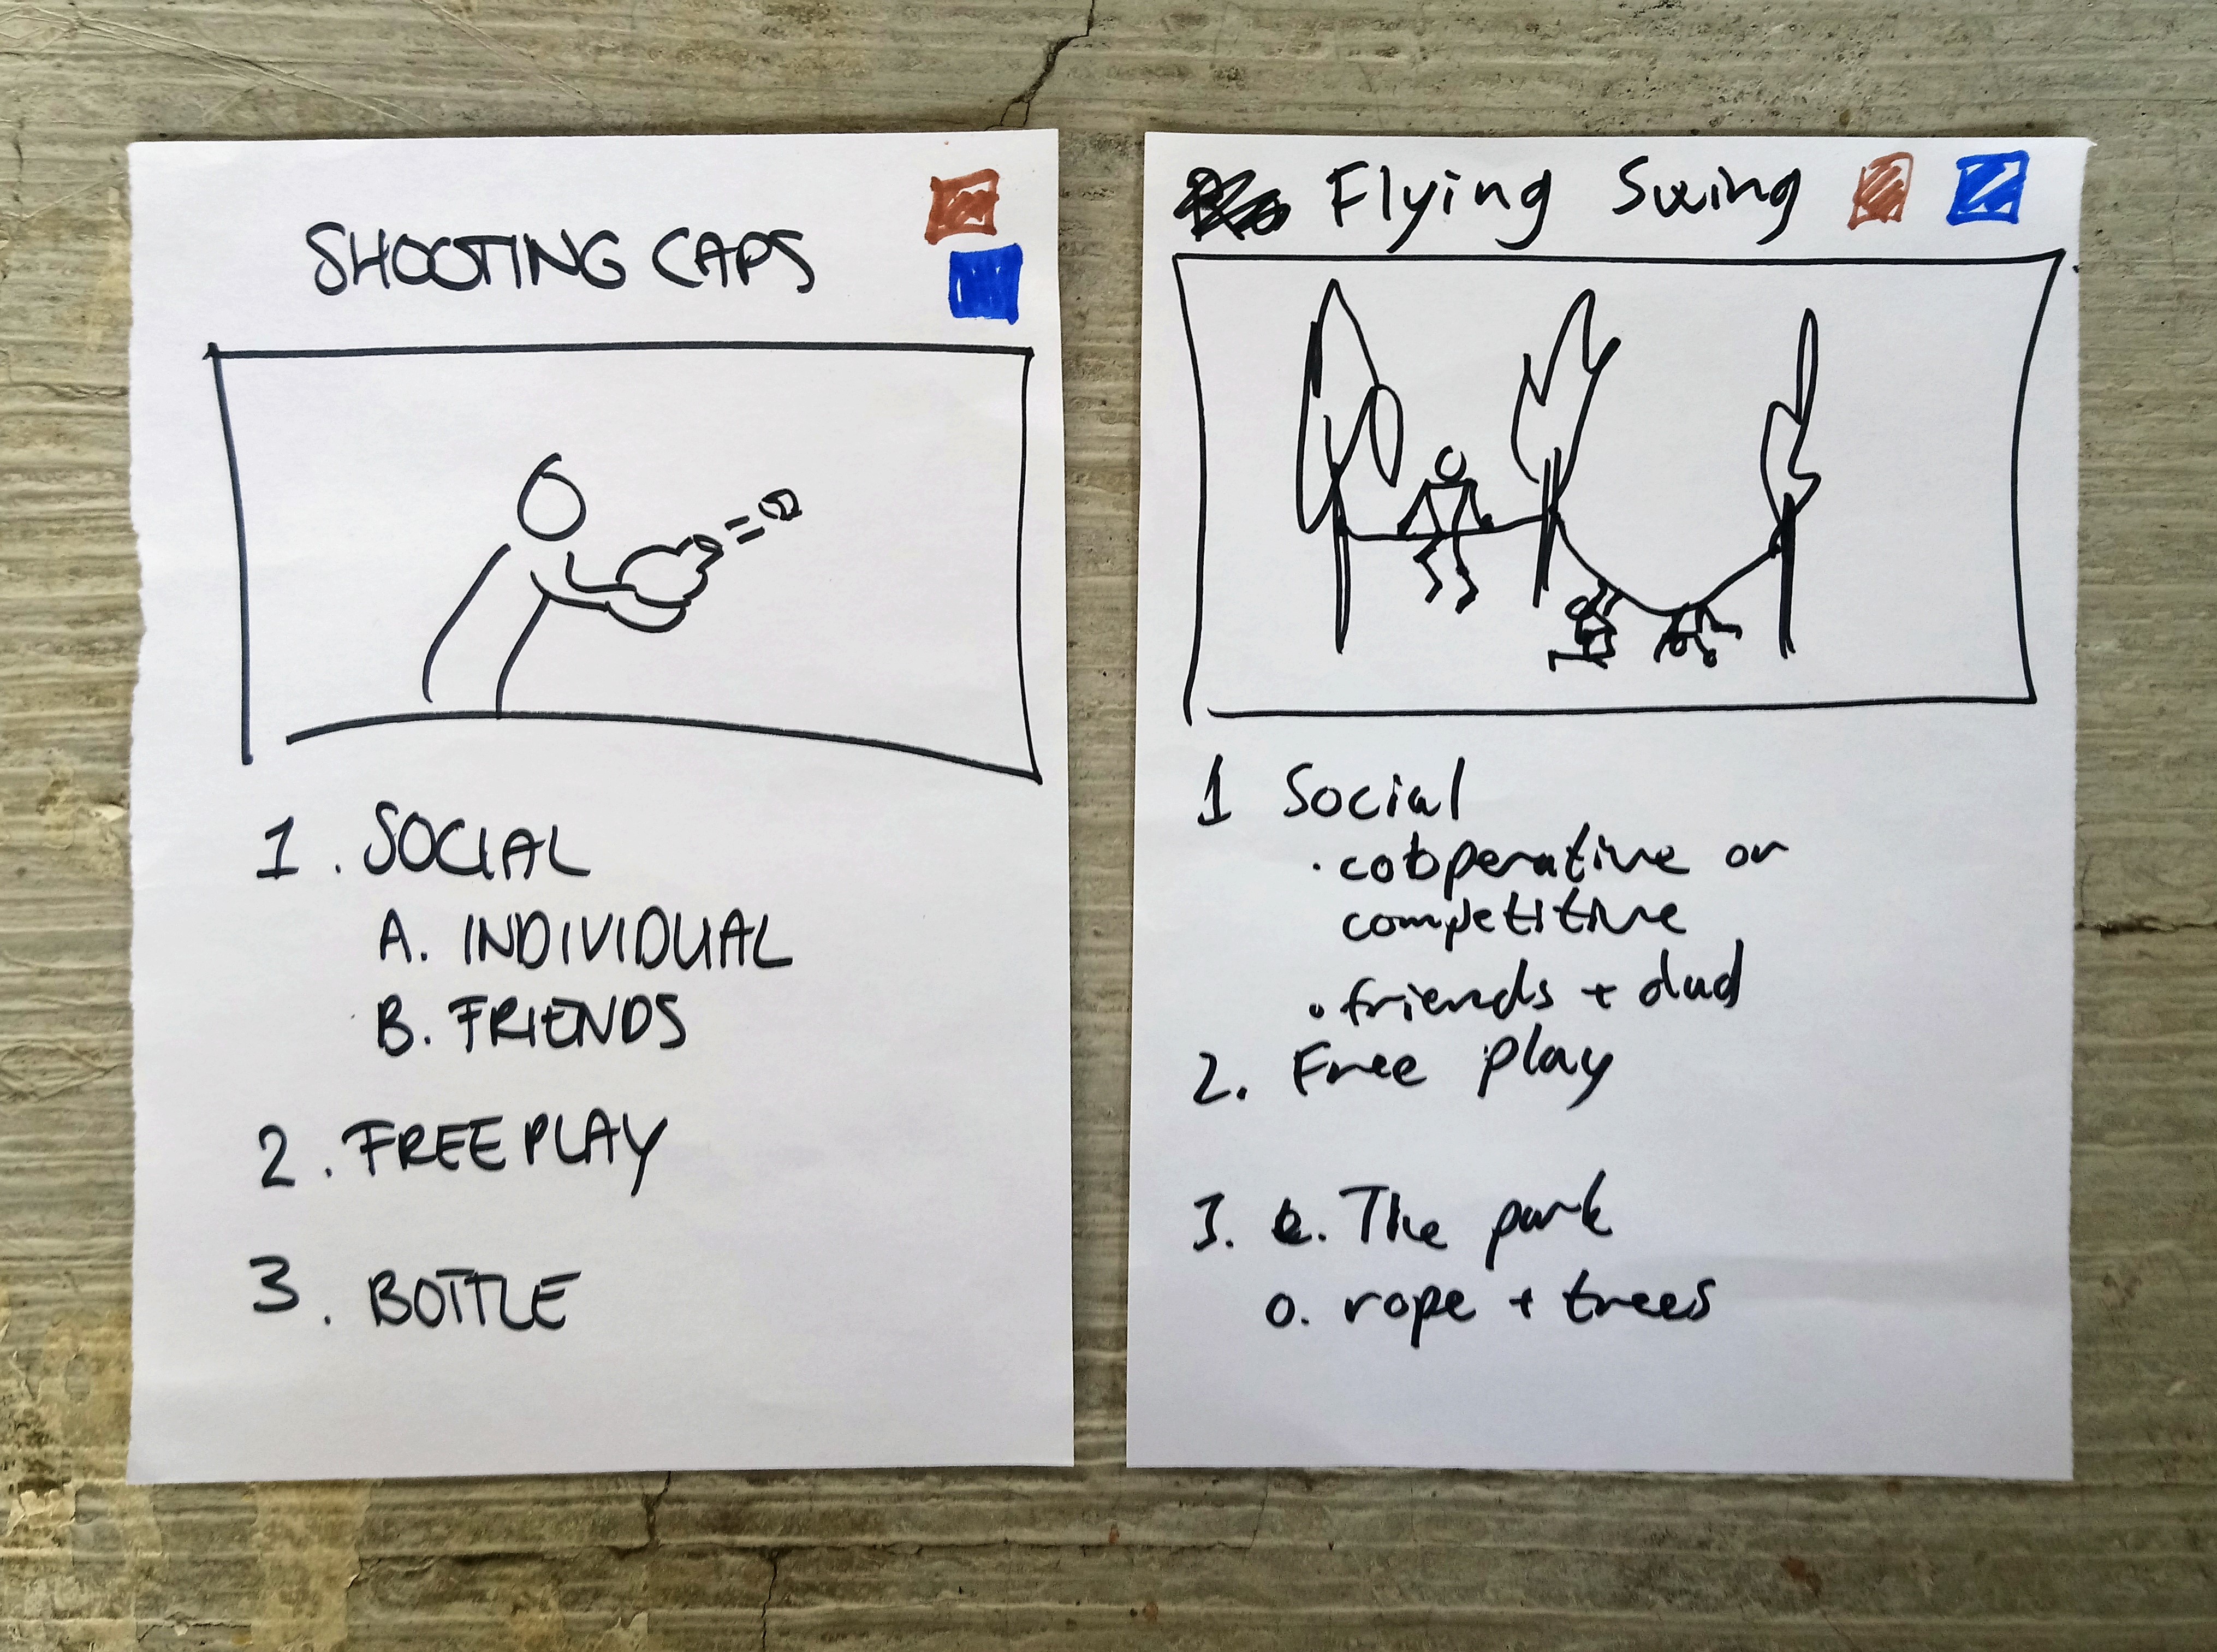 SHOOTING CAPS
1. SOCIAL
A. INDIVIDUAL
B. FRIENDS
2. FREE PLAY
3. BOTTLE
Flying Swing
1 Social
· cooperative or
competitive
• friends + dad
2. Free play
3. The park
o. rope + trees